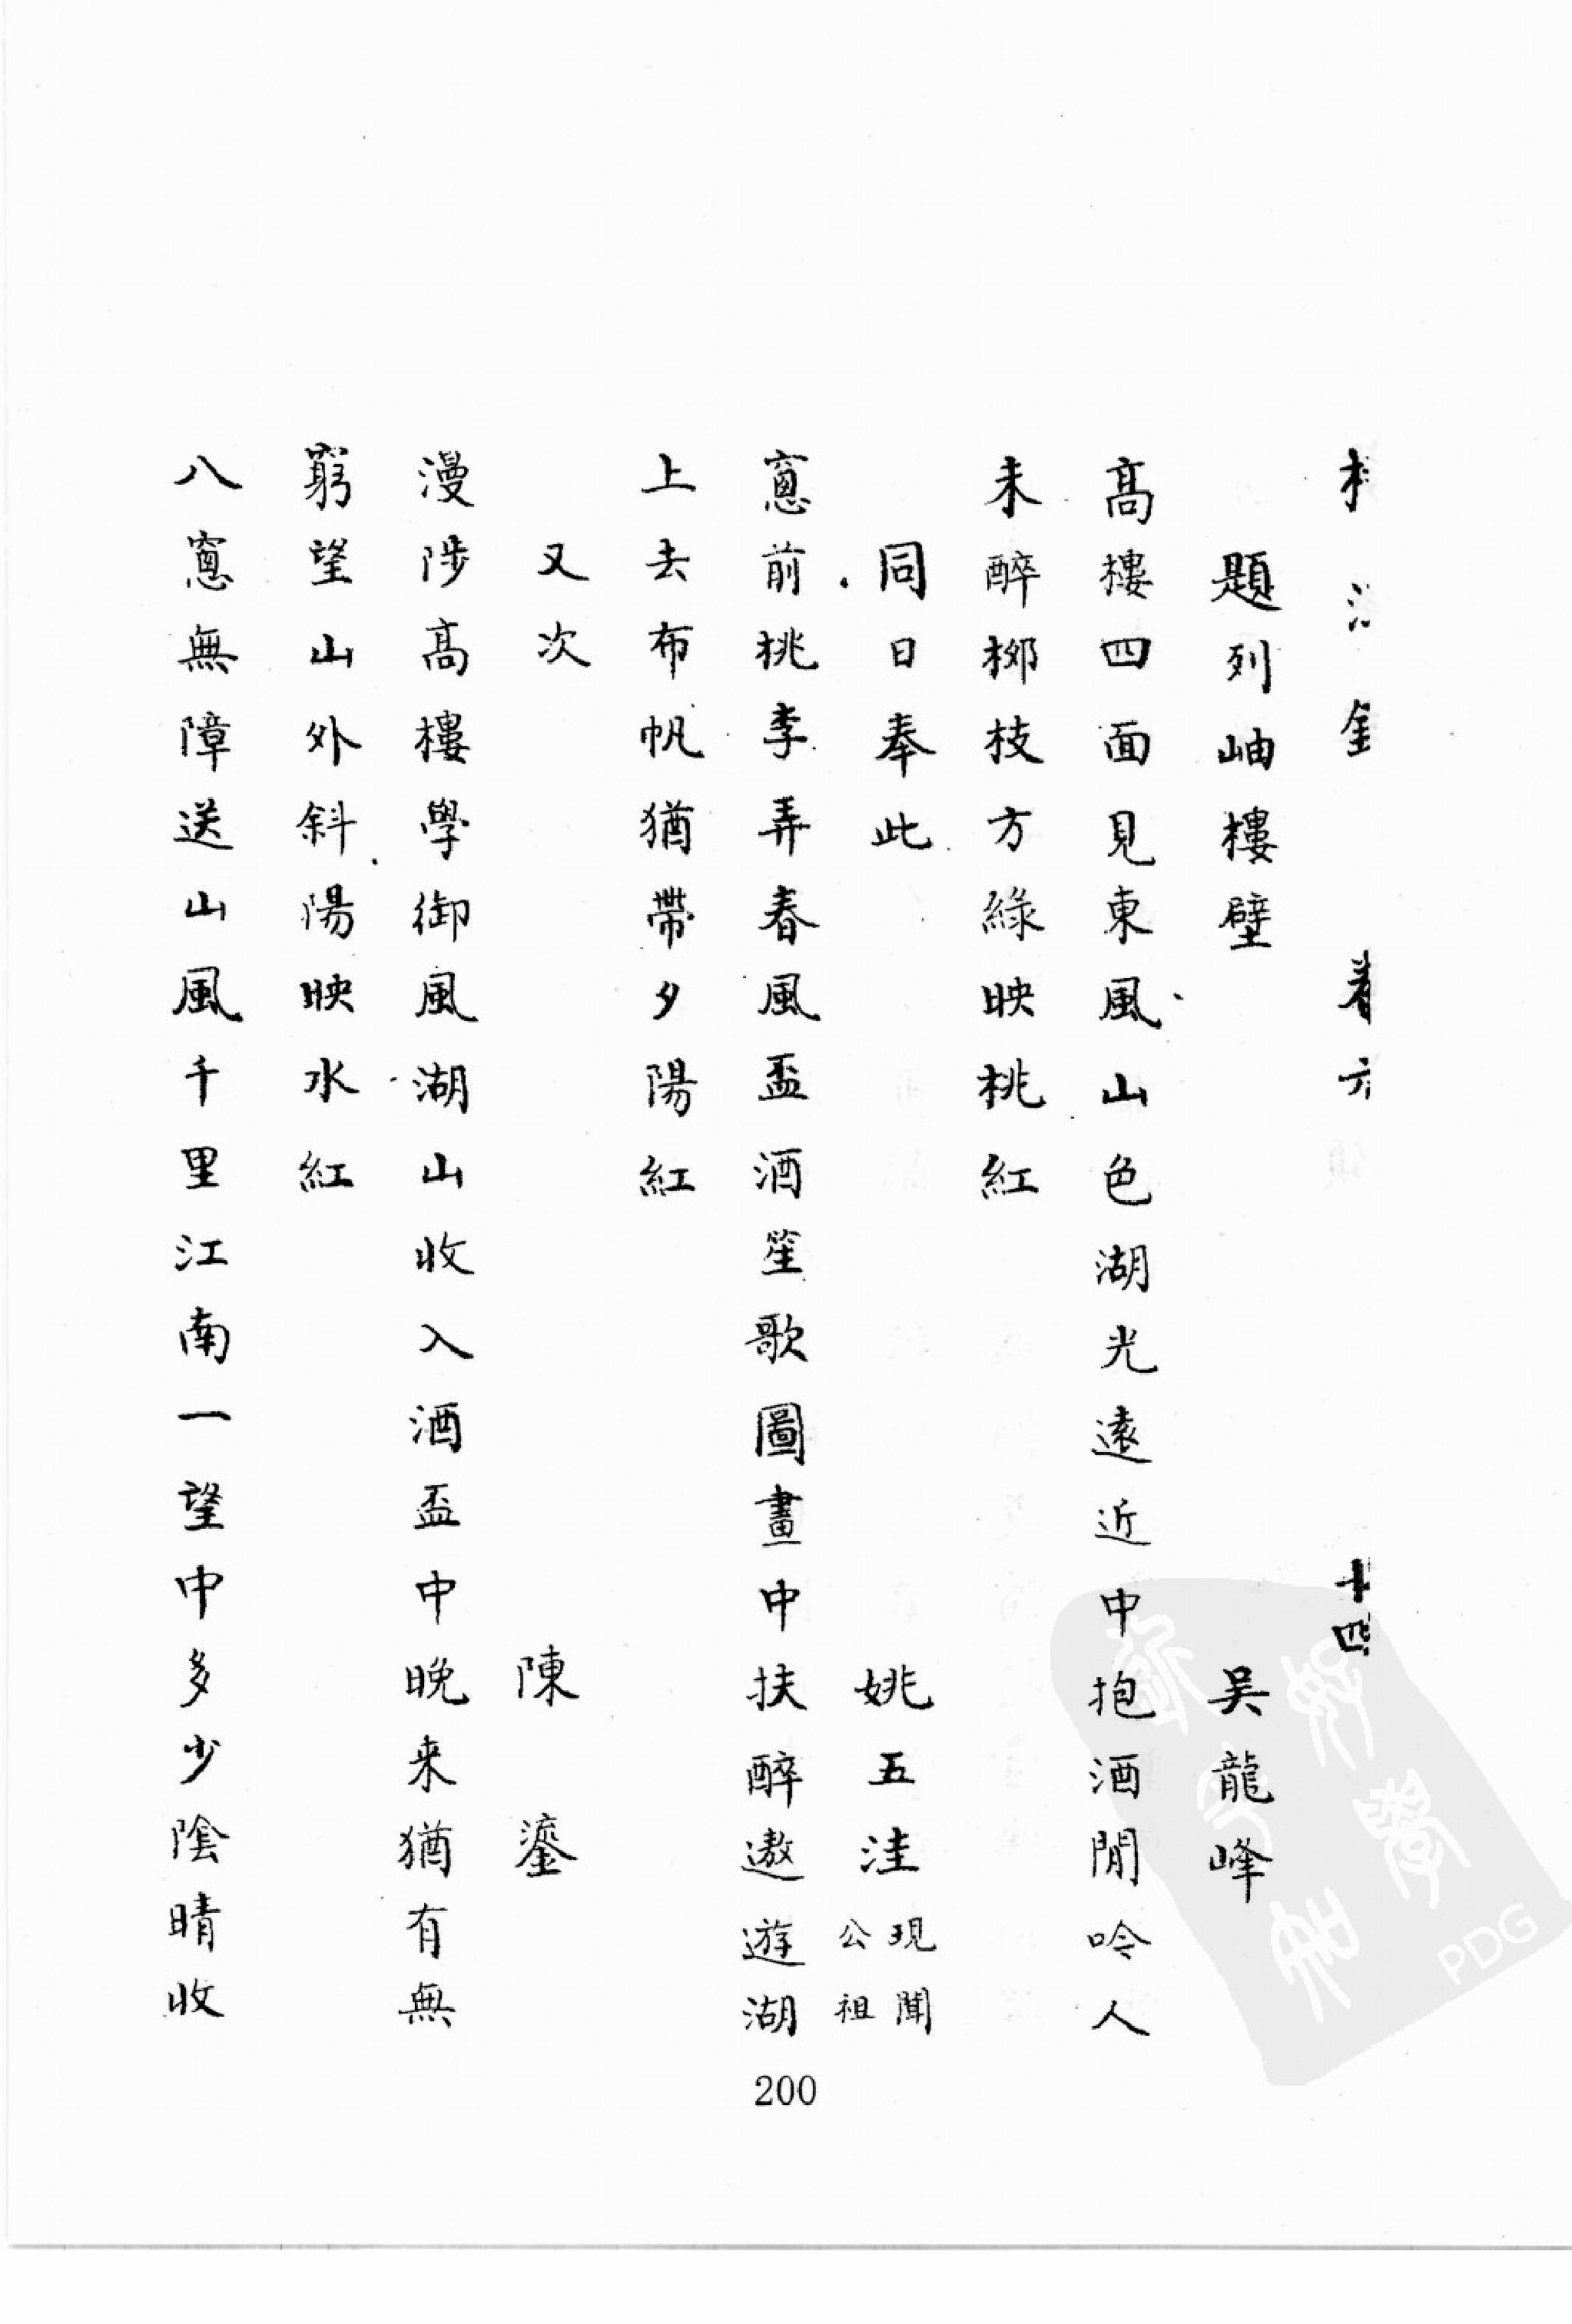 釒 卷六 十四
題列岫樓壁 吴龍峰
髙樓四面見東風山色湖光遠近中抱酒閒吟人
未醉柳枝方綠映桃紅
同日奉此 姚五洼 現聞公祖
窻前桃李弄春風盃酒笙歌圖畫中扶醉遨遊湖
上去布帆猶帶夕陽紅
又次 陳鎏
漫陟髙樓學御風湖山收入酒盃中晚来猶有無
窮望山外斜陽映水紅
八窻無障送山風千里江南一望中多少陰晴收
200
PDG